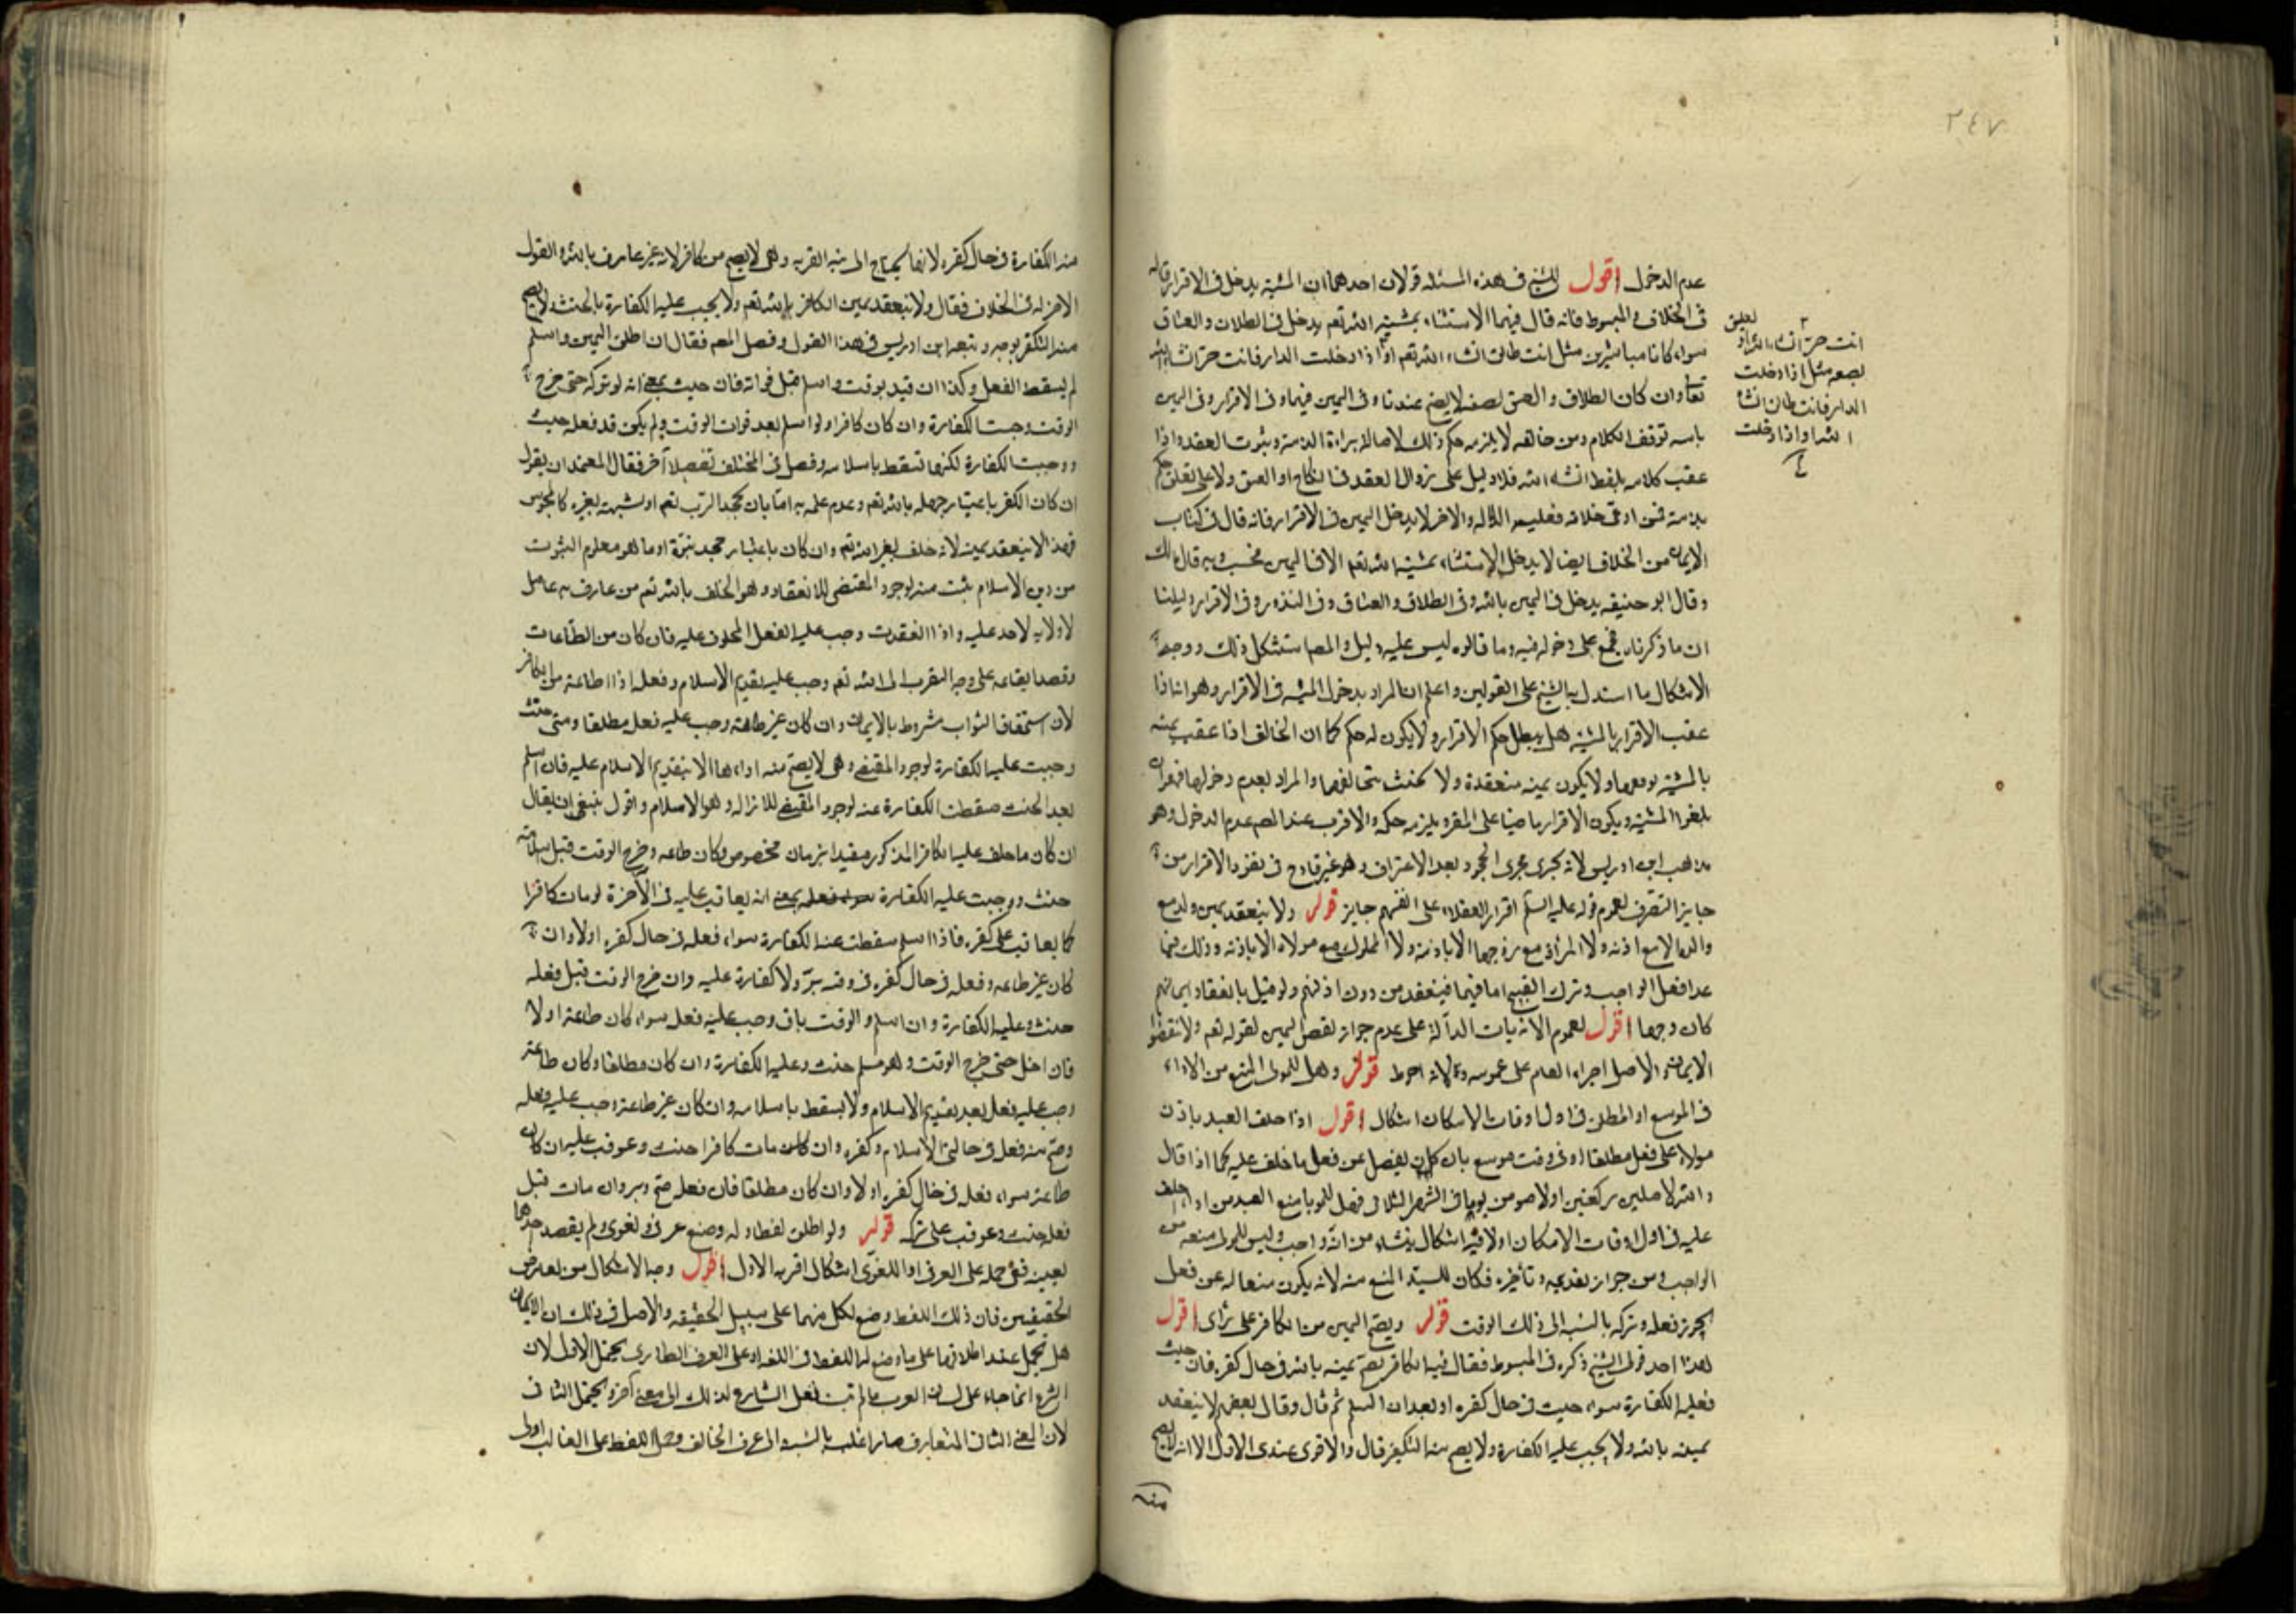 ٢٤٧
عدم الدخول اقول للشيخ في هذه المسئله قولان احدهما ان المشية يدخل في الاقرار قاله
في الخلاف و المبسوط فانه قال فيهما الاستثناء بمشية الله تعم يدخل في الطلاق والعتاق
سواء كانا مباشرين مثل انت طالق انشاء الله تعم او اذا دخلت الدار فانت حر انشاء الله
تعا وان كان الطلاق و العتق بصفه لا يصح عندنا و في اليمين فيهما و في الاقرار و في اليمين
بالله توقف الكلام ومن خالفه لا يلزمه حكم ذلك لاصالة براءة الذمة وثبوت العقد واذا
عقب كلامه بلفظ انشاء الله فلا دليل على زوال العقد في النكاح او العتق ولا على تعلق حكم
بذمته فمن ادعى خلافه فعليه الدلاله والاخر لا يدخل اليمين في الاقرار فانه قال في كتاب
الايمان من الخلاف ايضا لا يدخل الاستثناء بمشية الله تعم الا في اليمين فحسب وبه قال مالك
وقال ابو حنيفه يدخل في اليمين بالله وفي الطلاق والعتاق وفي النذور وفي الاقرار دليلنا
ان ما ذكرناه مجمع على دخوله فيه وما قالوه ليس عليه دليل والمصم استشكل ذلك ووجه
الاشكال ما استدل به الشيخ على القولين واعلم ان المراد بدخول المشية في الاقرار وهو انه اذا
عقب الاقرار بالمشية هل يبطل حكم الاقرار ولا يكون له حكم كما ان الحالف اذا عقب يمينه
بالمشية يوقفها ولا يكون يمينه منعقدة ولا يحنث بمخالفتها والمراد بعدم دخولها فيه ان
يلغوا المشية ويكون الاقرار ماضيا على المقر ويلزمه حكمه والاقرب عند المصم عدم الدخول وهو
مذهب ابن ادريس لانه يجرى مجرى الجحود بعد الاعتراف وهو غير قادح في نفوذ الاقرار من
جايز التصرف لعموم قوله عليه السلم اقرار العقلاء على انفسهم جايز قوله ولا ينعقد يمين ولد مع
والده الا مع اذنه ولا المرأة مع زوجها الا باذنه ولا المملوك مع مولاه الا باذنه وذلك فيما
عدا فعل الواجب وترك القبيح اما فيهما فينعقد من دون اذنهم ولو قيل بانعقاد ايمانهم
كان وجها اقول لعموم الايات الدالة على عدم جواز نقض اليمين لقوله تعم ولا تنقضوا
الايمان والاصل اجراء العام على عمومه ولانه احوط قوله وهل للمولى المنع من الاداء
في الموسع او المطلق في اول اوقات الامكان اشكال اقول اذا حلف العبد باذن
مولاه على فعل مطلقا او في وقت موسع بان كان يفضل عن فعل ما حلف عليه كما اذا قال
والله لاصلين ركعتين او لاصومن يوما في الشهر الثلاني فهل للمولى منع العبد من اداء ما حلف
عليه في اول اوقات الامكان اولا فيه اشكال ينشاء من انه واجب وليس للمولى منعه من
الواجب ومن جواز تقديمه و تأخيره فكان للسيد المنع منه لانه يكون منعا له عن فعل
يجوز فعله وتركه بالنسبه الى ذلك الوقت قوله ويصح اليمين من الكافر على رأى اقول
هذا احد قولى الشيخ ذكره في المبسوط فقال فيه الكافر يصح يمينه بالله في حال كفره فان حنث
فعليه الكفارة سواء حنث في حال كفره او بعد ان اسلم ثم قال وقال بعضهم لا ينعقد
يمينه بالله ولا يجب عليه الكفارة ولا يصح منه التكفير قال والاقوى عندى الاول الا انه لا يصح
منه
تعليق
انت حر انشاء الله او
بصفه مثل اذا دخلت
الدار فانت طالق انشاء
الله او اذا دخلت
منه الكفارة في حال كفره لانها يحتاج الى نية القربه وهى لا يصح من كافر لانه غير عارف بالله والقول
الاخر له في الخلاف فقال ولا ينعقد يمين الكافر بالله تعم ولا يجب عليه الكفارة بالحنث ولا يصح
منه التكفير بوجه وتبعه ابن ادريس في هذا القول وفصل المصم فقال ان اطلق اليمين واسلم
لم يسقط الفعل وكذا ان قيد بوقت واسلم قبل فواته فان حنث بمعنى انه لو تركه حتى خرج
الوقت وجبت الكفارة وان كان كافرا ولو اسلم بعد فوات الوقت ولم يكن قد فعله حنث
ووجبت الكفارة لكنها تسقط باسلامه وفصل في المختلف تفصيلا آخر فقال المعتمد ان يقول
ان كان الكفر باعتبار جهله بالله تعم وعدم علمه به اما بان يجحد الرب تعم او يشبهه بغيره كالمجوس
فهذا لا ينعقد يمينه لانه حلف بغير الله تعم وان كان باعتبار جحد نبوة او ما هو معلوم الثبوت
من دين الاسلام ثبت منه لوجود المقتضى للانعقاد وهو الحلف بالله تعم من عارف به عاقل
لا ولاية لاحد عليه واذا انعقدت وجب عليه الفعل المحلوف عليه فان كان من الطاعات
وقصد ايقاعه على وجه التقرب الى الله تعم وجب عليه تقديم الاسلام وفعله اذ لا طاعة من الكافر
لان استحقاق الثواب مشروط بالايمان وان كان غير طاعة وجب عليه فعله مطلقا ومتى حنث
وجبت عليه الكفارة لوجود المقتضى وهى لا يصح منه اداءها الا بتقديم الاسلام عليه فان اسلم
بعد الحنث سقطت الكفارة عنه لوجود المقتضى للازاله وهو الاسلام واقول ينبغى ان يقال
ان كان ما حلف عليه الكافر المذكور مقيدا بزمان مخصوص وكان طاعه وخرج الوقت قبل اسلامه
حنث ووجبت عليه الكفارة سواء فعله بمعنى انه يعاقب عليه في الآخرة لو مات كافرا
كما يعاقب على كفره فاذا اسلم سقطت عنه الكفارة سواء فعله في حال كفره اولا وان
كان غير طاعه وفعله في حال كفره في وقته بر ولا كفارة عليه وان خرج الوقت قبل فعله
حنث وعليه الكفارة وان اسلم والوقت باق وجب عليه فعله سواء كان طاعة اولا
فان اخل حتى خرج الوقت وهو مسلم حنث وعليه الكفارة وان كان مطلقا وكان طاعة
وجب عليه فعله بعد تقديم الاسلام ولا يسقط باسلامه وان كان غير طاعة وجب عليه فعله
وصح منه فعله في حالتى الاسلام وكفره وان كان مات كافرا حنث وعوقب عليه ان كان
طاعة سواء فعله في حال كفره اولا وان كان مطلقا فان فعله صح وبر وان مات قبل
فعله حنث وعوقب على تركه قوله ولو اطلق لفظا وله وضع عرفى ولغوى ولم يقصد احدهما
بعينه ففى حمله على العرفى او اللغوى اشكال اقربه الاول اقول وجه الاشكال من تعارض
الحقيقتين فان ذلك اللفظ وضع لكل منهما على سبيل الحقيقه والاصل في ذلك ان الايمان
هل يحمل عند اطلاقها على ما وضع له اللفظ في اللغه او على العرف الطارى يحتمل الاول لان
الشرع انما جاء على لسان العرب ما لم يثبت نقل الشارع لذلك الى معنى آخر ويحتمل الثانى
لان المعنى الثانى المتعارف صار اغلب بالنسبه الى عرف الحالف وحمل اللفظ على الغالب اولى